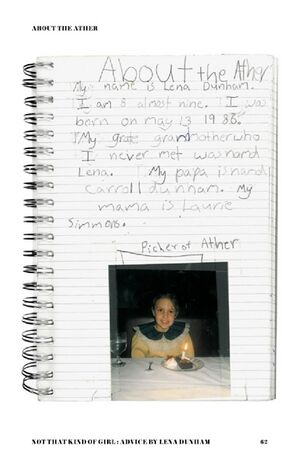 ABOUT THE ATHER
About the Ather
My name is Lena Dunham.
I am 8 almost nine. I was
born on may 13 1986.
My grate grandmother who
I never met was namd
Lena. My papa is namd
Carroll dunham. My
mama is Laurie
Simmons.
Picher of Ather
NOT THAT KIND OF GIRL: ADVICE BY LENA DUNHAM 62